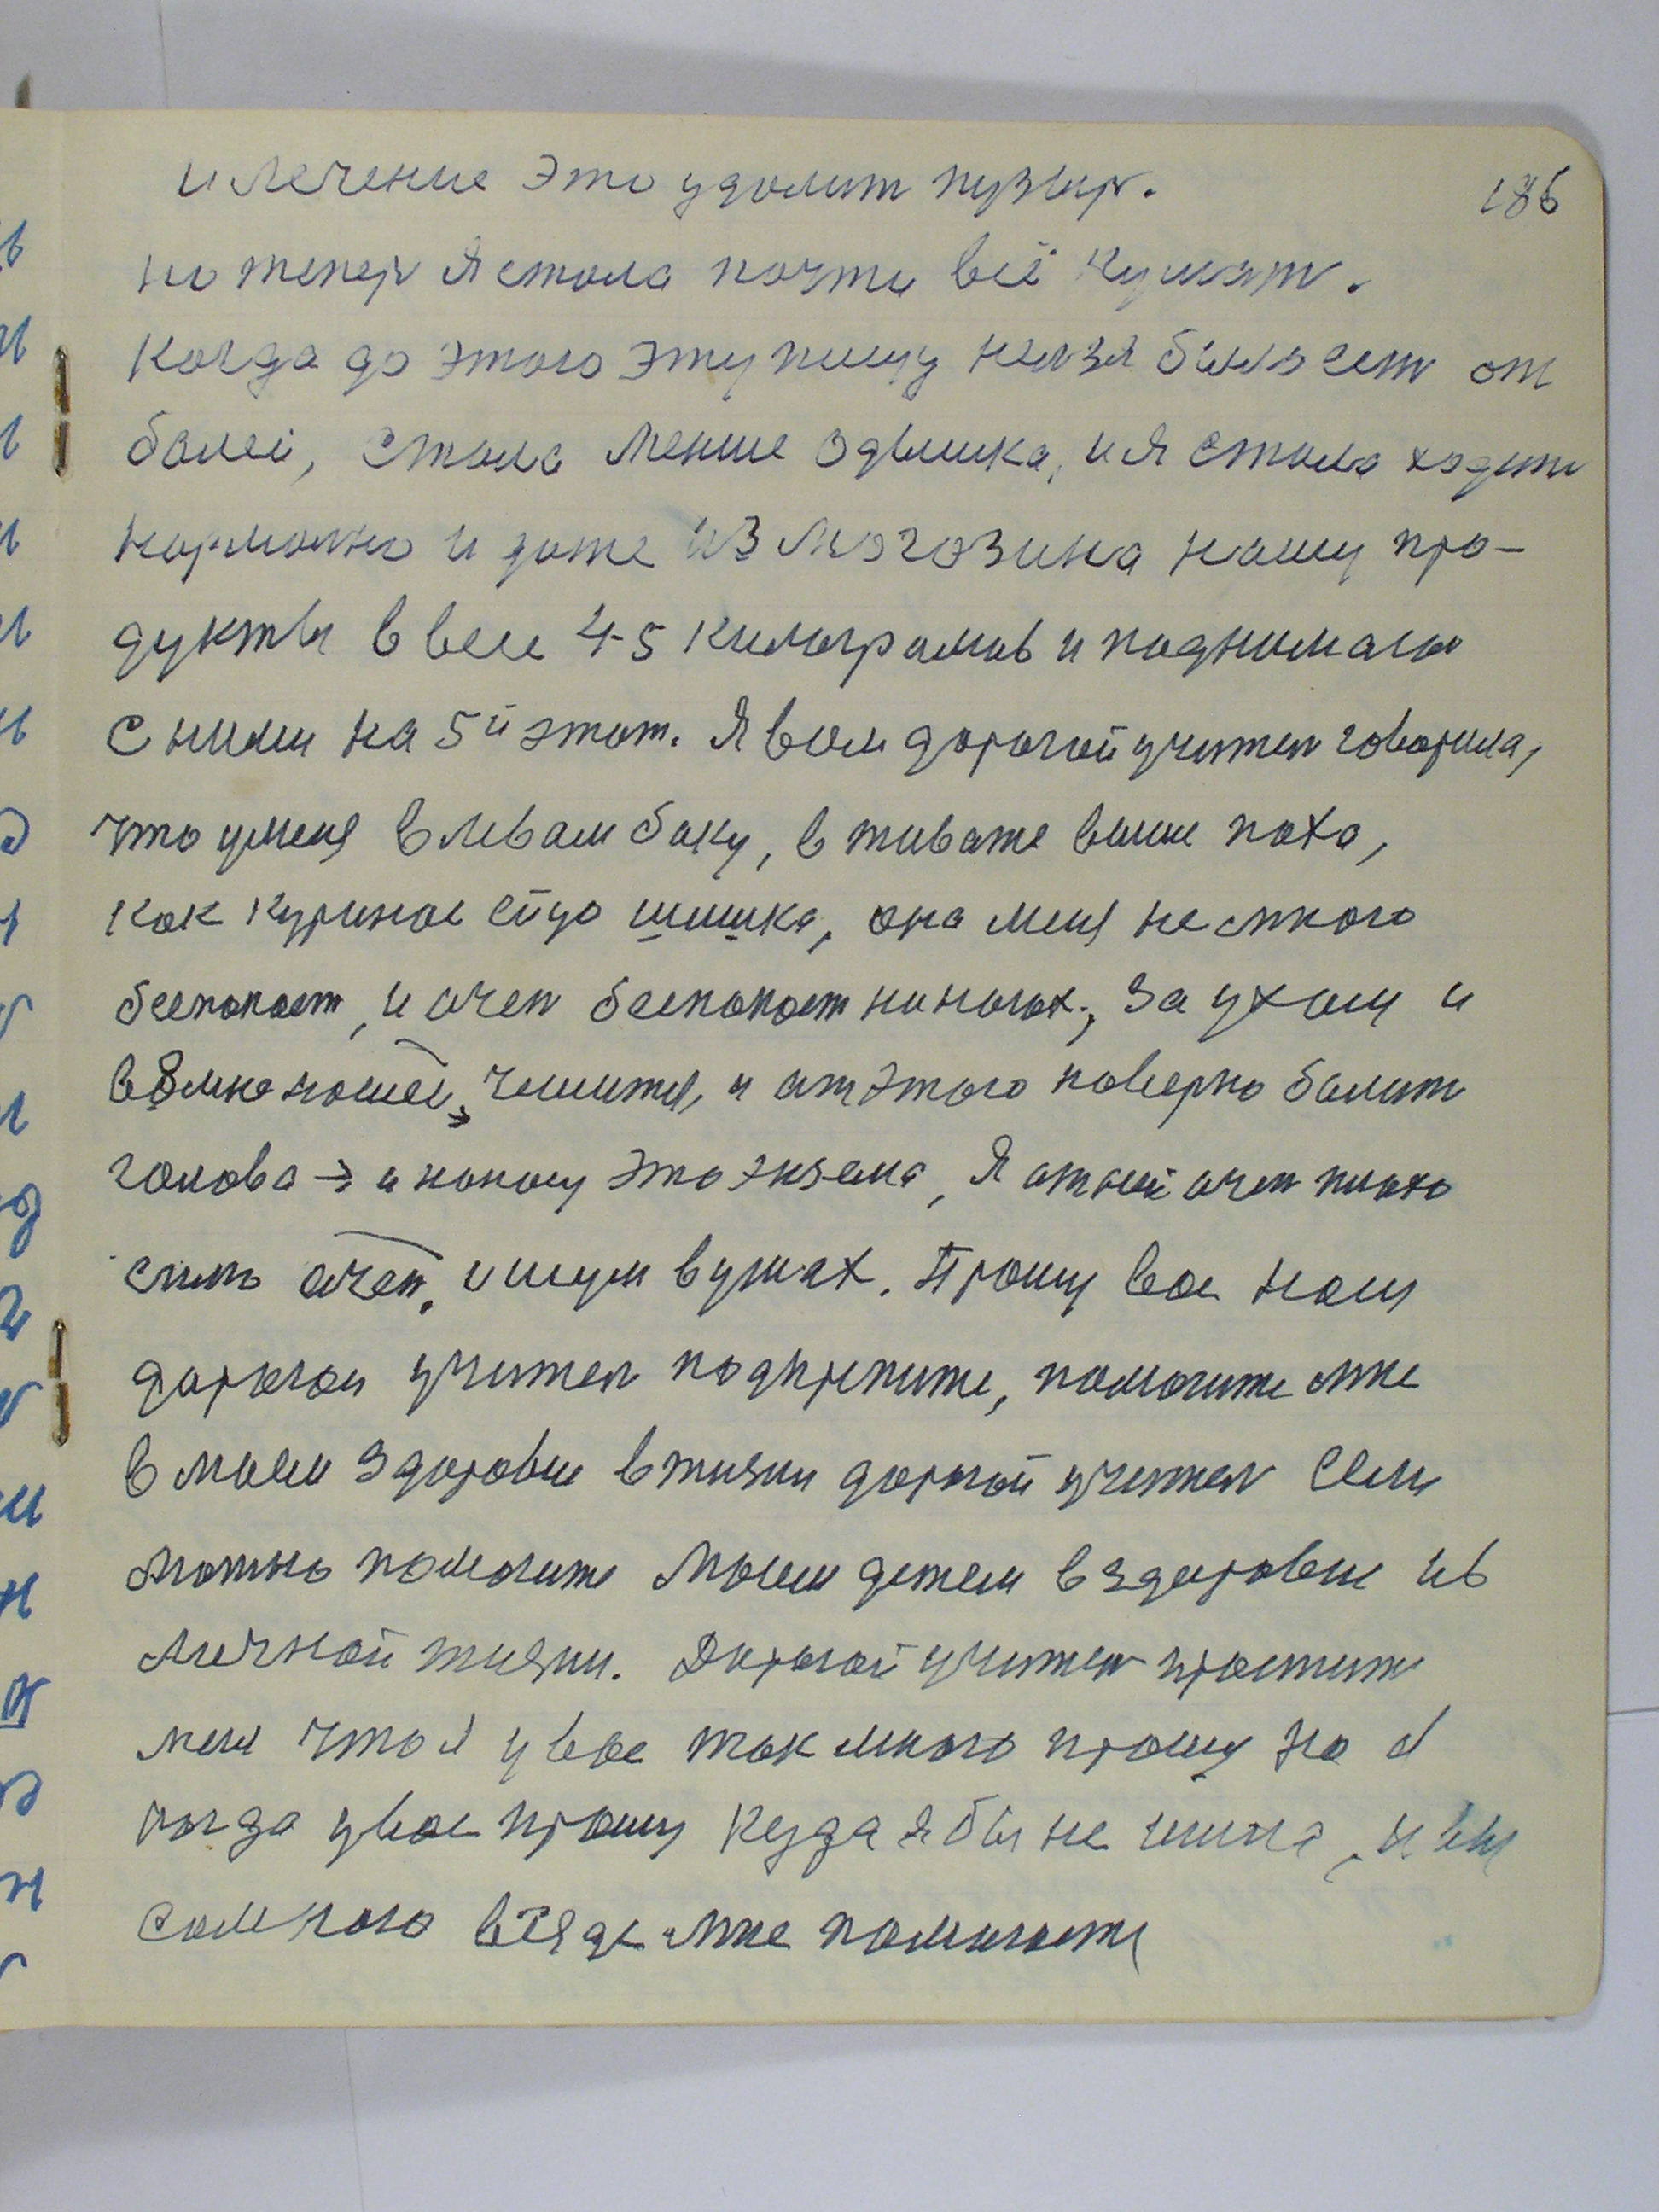 и лечение это удолит пузырь.
186
но тепер я стала почти всё кушать.
Когда до этого эту пищу нелзя было есть от
балей, стала менше одышка, и я стала ходить
нормално и даже из могозина нашу про-
дукты в веси 4-5 килограмов и поднимаюс
с ними на 5й этаж. Я вам дорогой учител говорила,
что у меня в левам баку, в животе выше паха,
как куриное ейцо шишка, она меня не много
беспокоет, и очен беспокоет на ногах, за ухом и
в ямке на шеей, чешится, и от этого наверно балит
голова → и по моему это экзема, я от ней очен плохо
слышо очен, и шум в ушах. Прошу вас наш
дарагой учител подкрепите, помогите мне
в моем здоровье в жизни дорогой учител если
можно помогите моим детем в здоровье и в
личной жизни. Дорогой учител простите
меня что я у вас так много прошу но я
когда у вас прошу куда я бы не шла, и вы
со мною везде мне помогаете